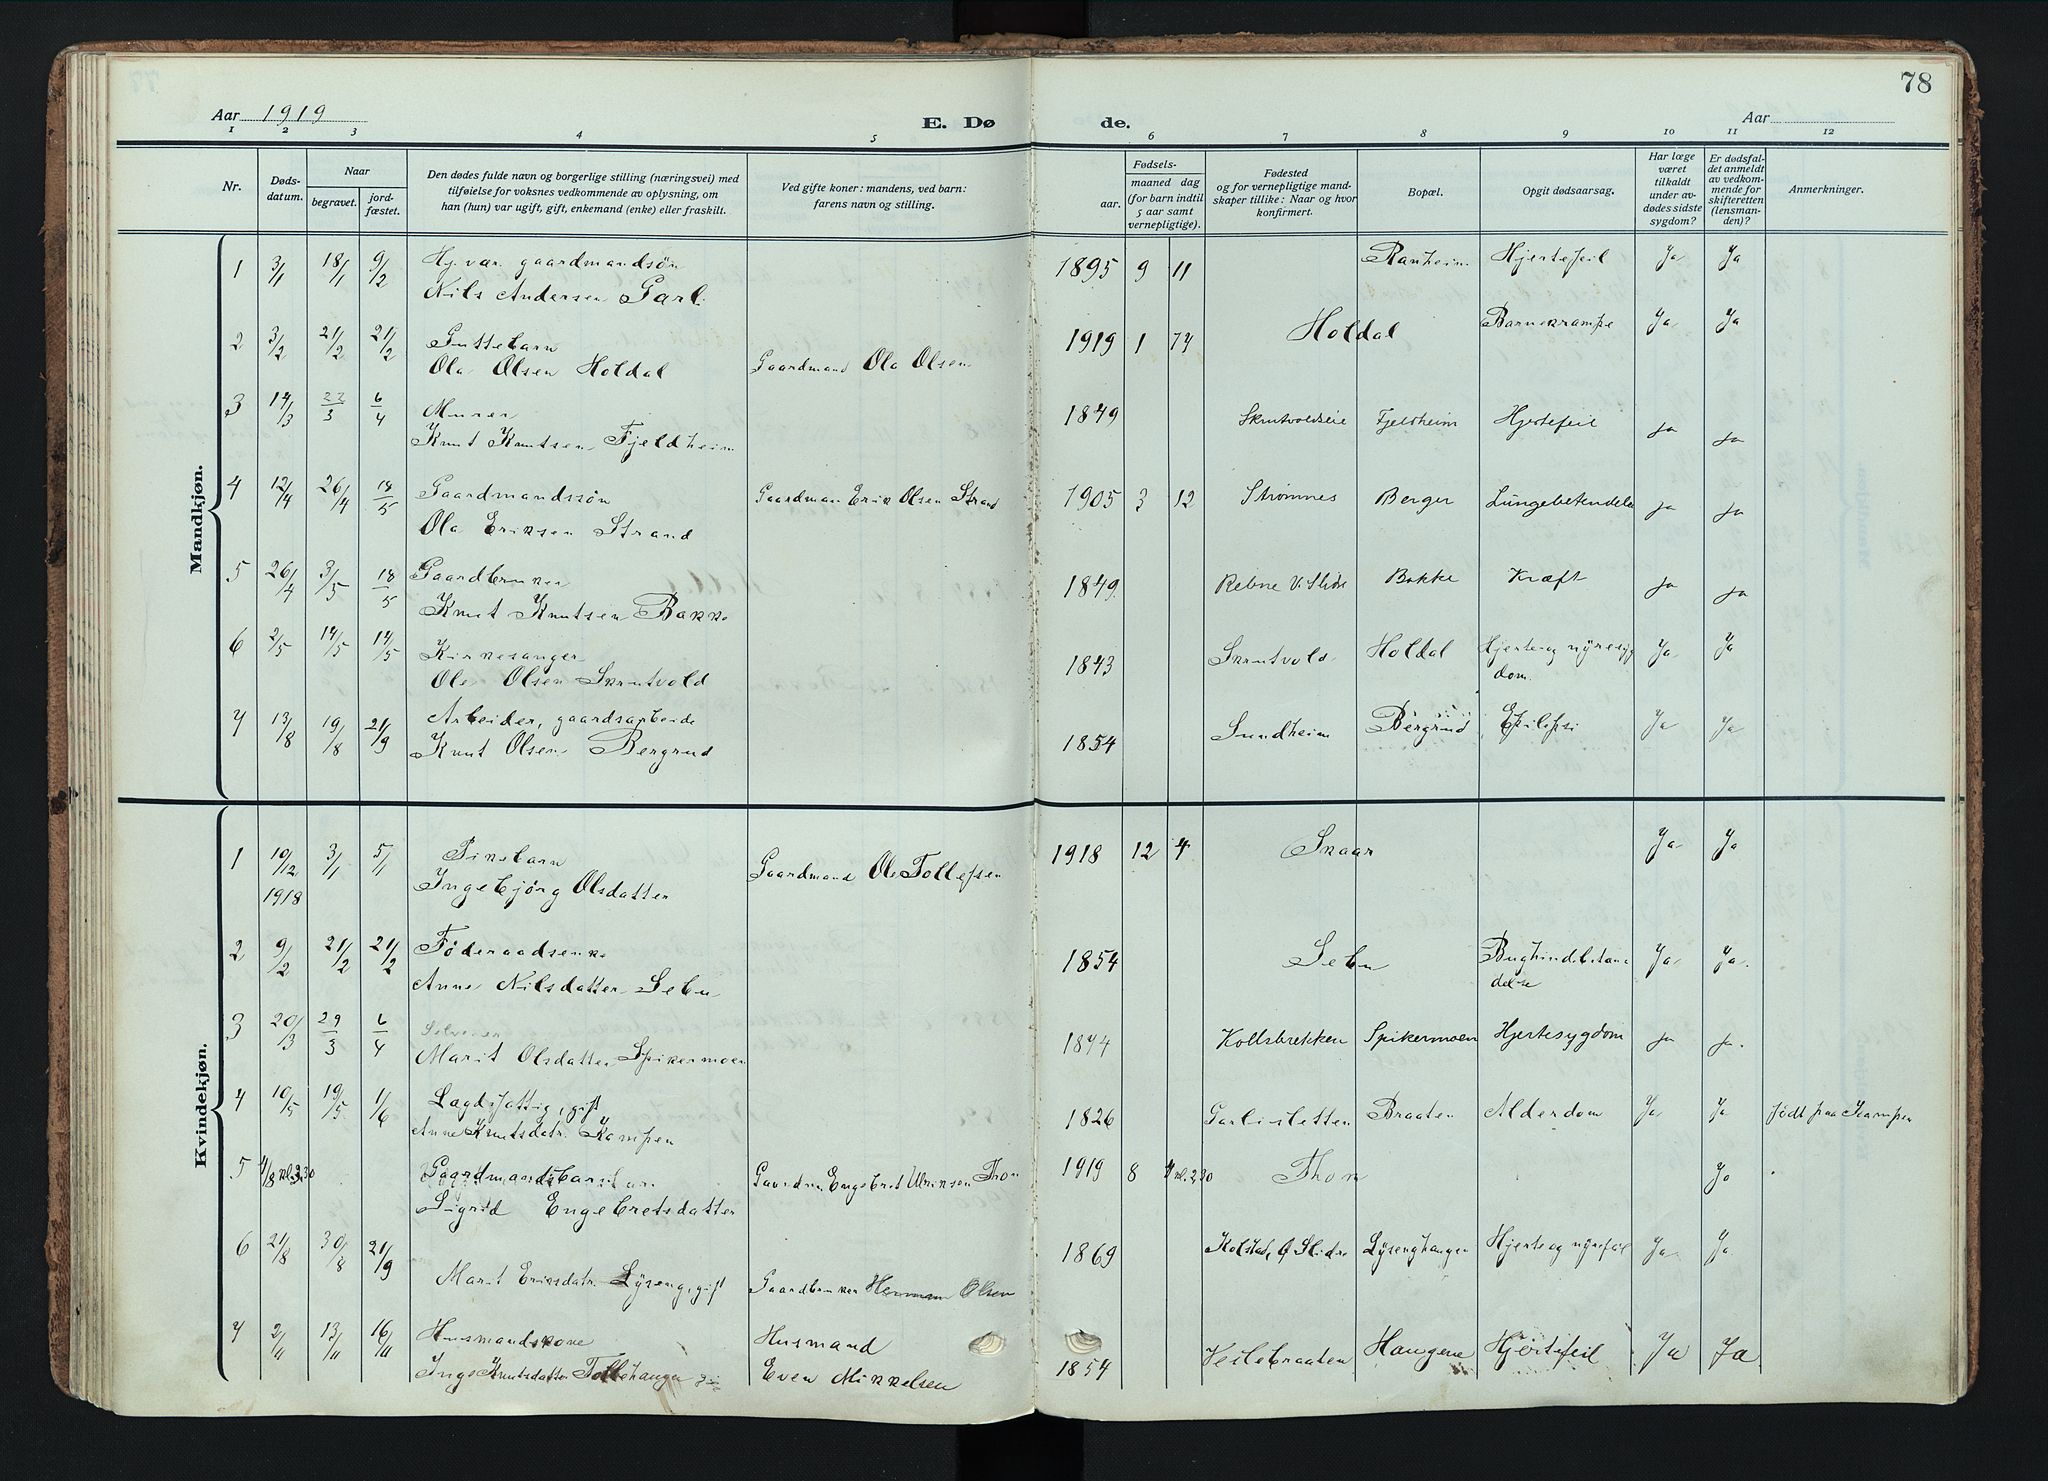 78
Aar 1919
E. Dø
de.
Aar
1 2 3 4 5 6 7 8 9 10 11 12
Nr.
Døds-
datum.
Naar
begravet.
jord-
fæstet.
Den dødes fulde navn og borgerlige stilling (næringsvei) med
tilføielse for voksnes vedkommende av oplysning, om
han (hun) var ugift, gift, enkemand (enke) eller fraskilt.
Ved gifte koner: mandens, ved barn:
farens navn og stilling.
Fødsels-
aar.
maaned dag
(for barn indtil
5 aar samt
vernepligtige).
Fødested
og for vernepligtige mand-
skaper tillike: Naar og hvor
konfirmert.
Bopæl.
Opgit dødsaarsag.
Har læge
været
tilkaldt
under av-
dødes sidste
sygdom?
Er dødsfal-
det anmeldt
av vedkom-
mende for
skifteretten
(lensman-
den)?
Anmerkninger.
Mandkjøn.
1 3/1 18/1 9/2 gaardmandsøn 1895 9 11 Ranheim Hjertefeil Ja Ja
Nils Andersen Garli
2 3/2 21/2 21/2 Guttebarn 1919 1 Holdal Barnekrampe Ja Ja
Ola Olsen Holdal Gaardmand Ola Olsen
3 14/3 22/3 6/4 Murer 1849 Skrutvoldseie Fjeldheim Hjertefeil ja ja
Knut Knutsen Fjeldheim
4 12/4 26/4 18/5 Gaardmandssøn Gaardman Erik Olsen Strand 1905 3 12 Strømnes Berger Lungebetendelse ja ja
Ola Eriksen Strand
5 26/4 3/5 18/5 Gaardbruker 1849 Rebne V. Slidre Bakke Kræft ja ja
Knut Knutsen Bakke
6 2/5 14/5 14/5 Kirkesanger 1843 Skrutvold Holdal Hjerte og nyresyg Ja Ja
Ole Olsen Skrutvold dom.
7 13/8 19/8 21/9 Arbeider, gaardsarbeide 1854 Sundheim Bergrud Epilepsi Ja Ja
Knut Olsen Bergrud
Kvindekjøn.
1 10/12 3/1 5/1 Pikebarn Gaardmand Ole Tollefsen 1918 12 4 Skaar Ja Ja
1918 Ingebjörg Olsdatter
2 9/2 21/2 21/2 Föderaadsenke 1854 Sebu Ja Ja.
Anne Nilsdatter Sebu delse
3 20/3 29/3 6/4 1844 Kollsbrekken Spikermoen Hjertesygdom ja ja.
Marit Olsdatter Spikermoen
4 10/5 19/5 1/6 Lagdsfattig, gift 1826 Garlisletten Braaten Alderdom Ja Ja født paa Kampen
Anne Knutsdatr. Kampen
5 4/8 kl. 2.30 Gaardmandsbarn Gaardm. Engebret Ulriksen Thon 1919 8 4 kl. 2.30 Thon Ja
Sigrid Engebretsdatter
6 21/8 30/8 21/9 1869 Kolstad, Ø Slidre Lysenghaugen Hjerte og nyrefeil Ja Ja
Marit Eriksdatr. Lyseng, gift Gaardbruker Herman Olsen
7 2/11 13/11 16/11 Husmandskone Husmand 1854 Veslebraaten Haugene Hjertefeil Ja Ja
Inge Knutsdatter Tollehaugen Even Mikkelsen